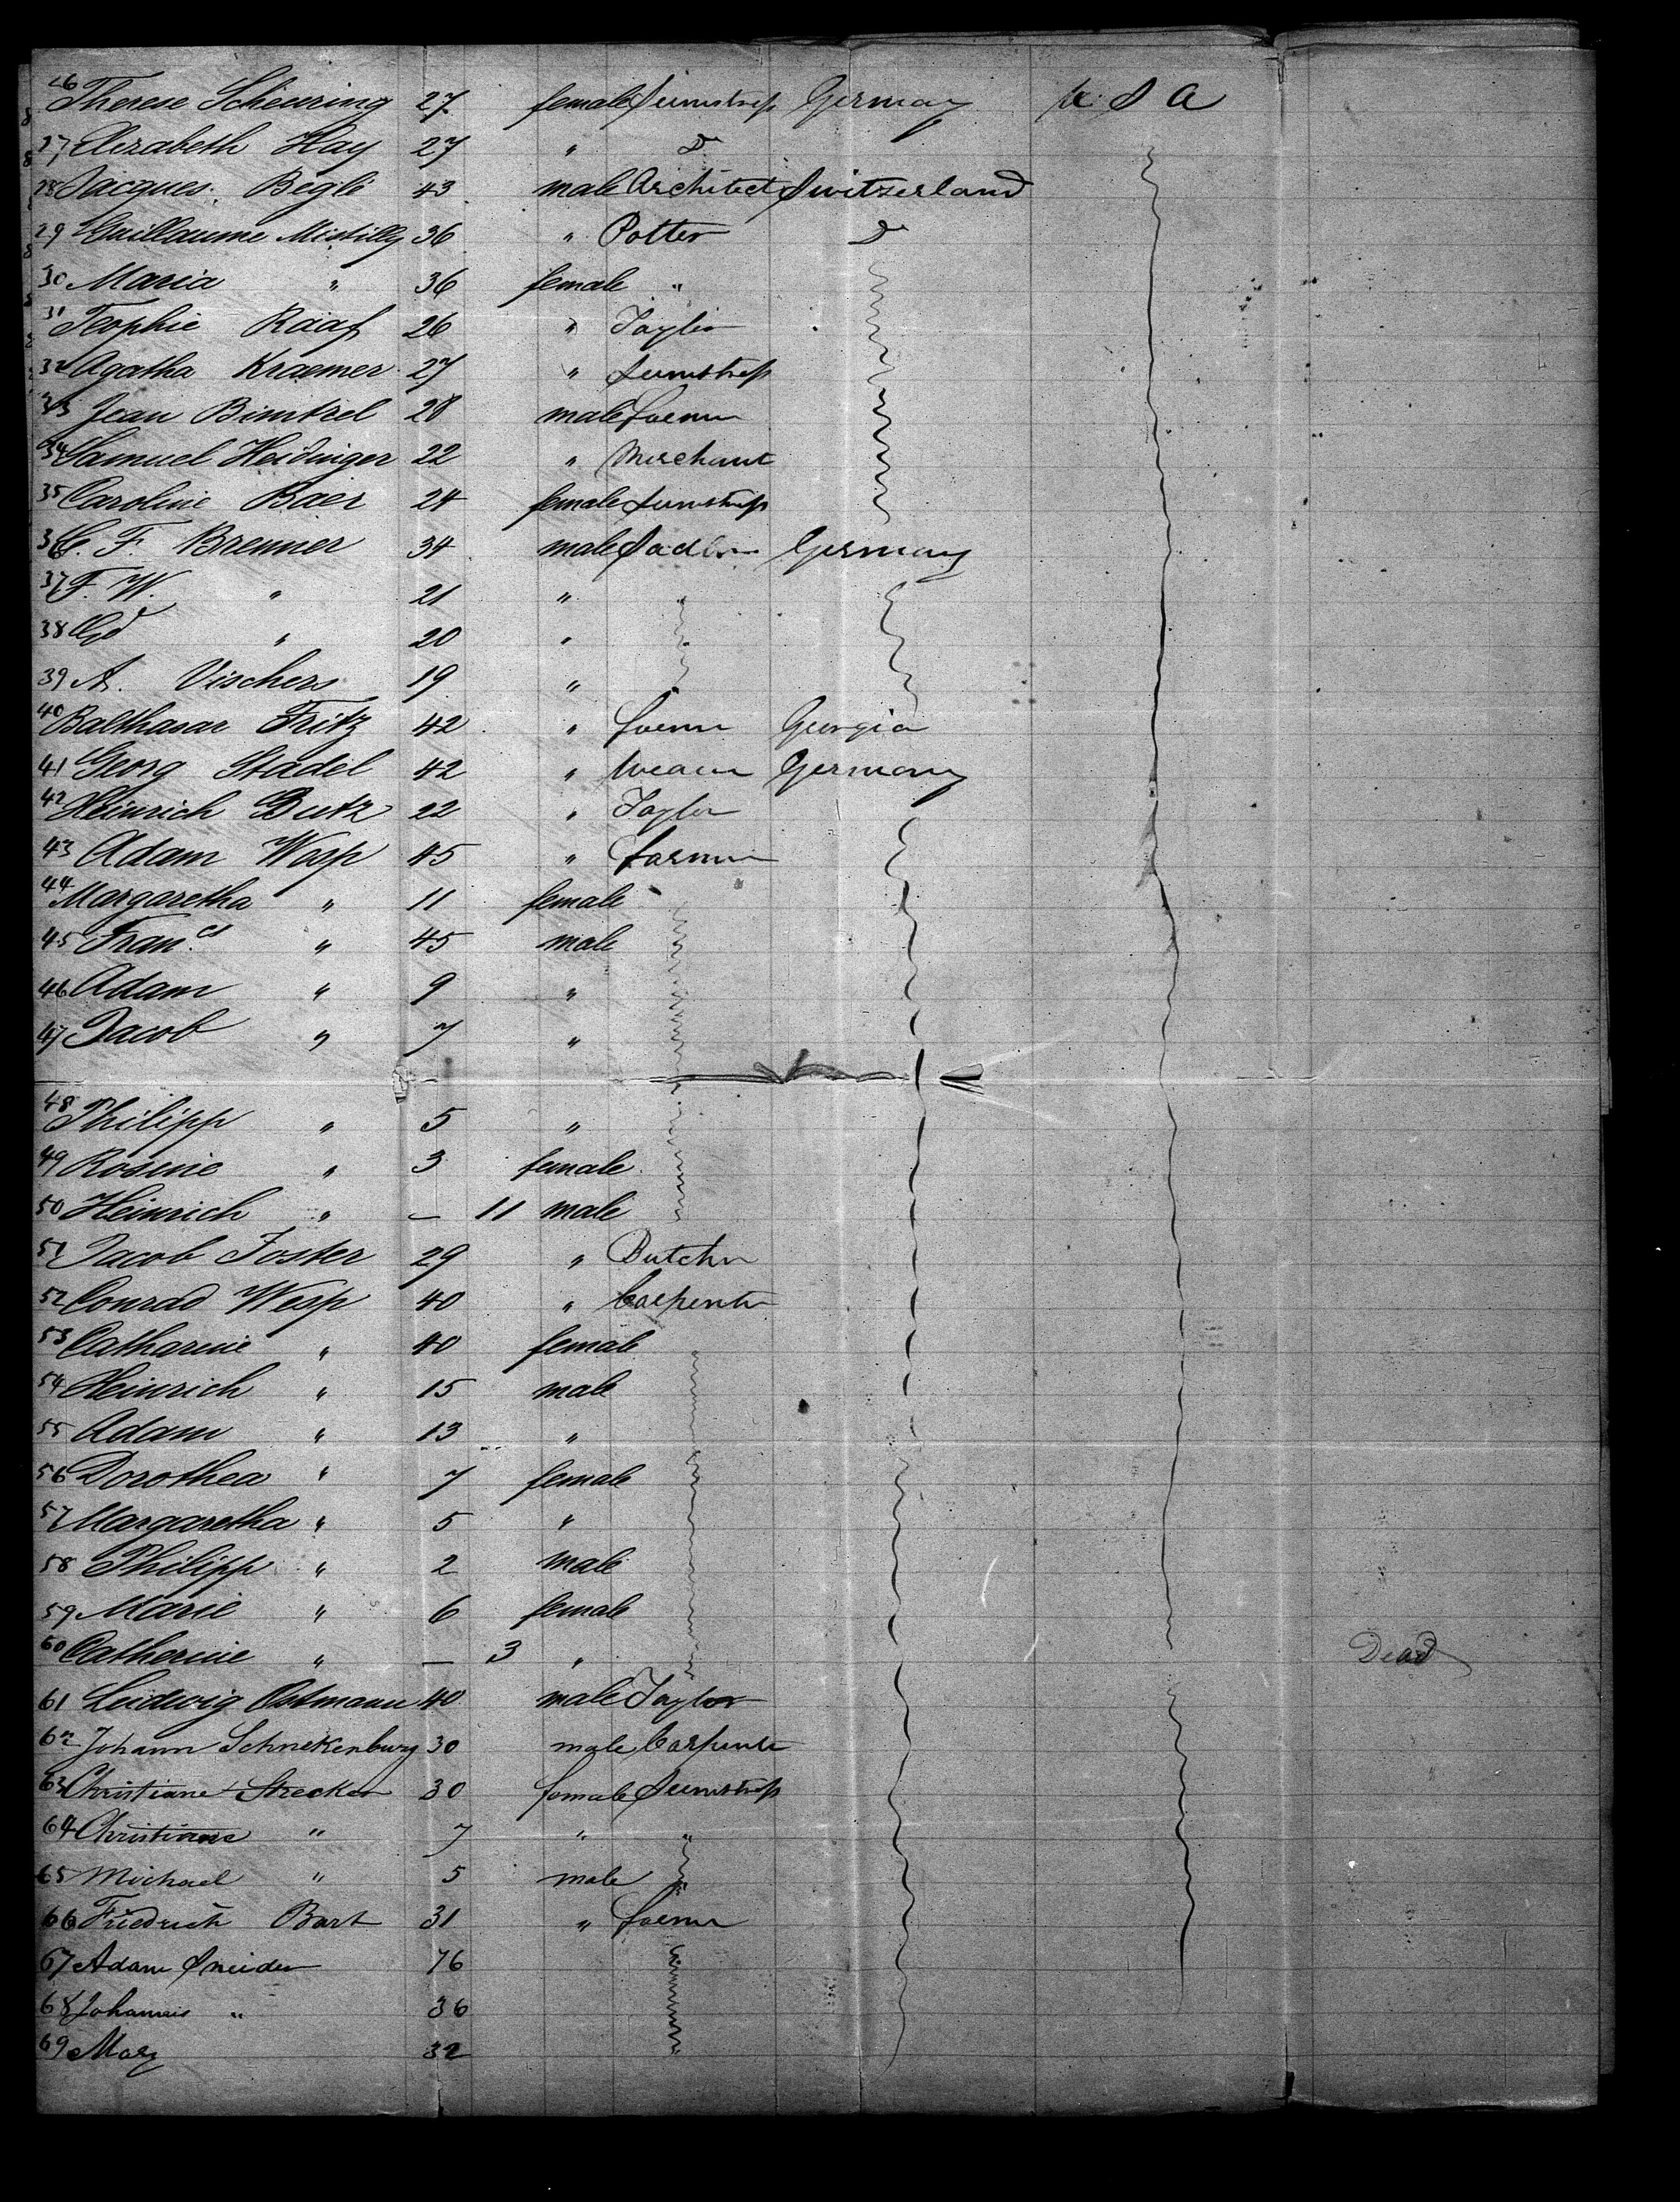 26 Therese Scheuring 27 female Seemstress Germany U S A
27 Elizabeth Hay 27 " Do
28 Jacques Begli 43 male Architect Switzerland
29 Guillaume 36 " Potter Do
30 Maria " 36 female "
31 Sophie Raaf 26 " Taylor
32 Agatha Kraemer 27 " Seemstress
33 Jean Bimtzel 28 male Farmer
34 Samuel Heidinger 22 " Merchant
35 Caroline Baer 24 female Seemstress
36 C. F. Brenner 34 male Sadler Germany
37 F. W. " 21 "
38 " 20 "
39 A. Vischers 19 "
40 Balthasar Fritz 42 " Farmer Georgia
41 Georg Stadel 42 " Weaver Germany
42 Heinrich Butz 22 " Taylor
43 Adam Wesp 45 " Farmer
44 Margaretha " 11 female
45 Fran.cs " 45 male
46 Adam " 9 "
47 Jacob " 7 "
48 Philipp " 5 "
49 Rosine " 3 female
50 Heinrich " — 11 male
51 Jacob Foster 29 " Butcher
52 Conrad Wesp 40 " Carpenter
53 Catharine " 40 female
54 Heinrich " 15 male
55 Adam " 13 "
56 Dorothea " 7 female
57 Margaretha " 5 "
58 Philipp " 2 male
59 Marie " 6 female
60 Catherine " — 3 " Dead
61 Ludwig Ostmann 40 male Taylor
62 Johann Schnekenburg 30 male Carpenter
63 Christiane Strecker 30 female Seemstress
64 Christiane " 7 " "
65 Michael " 5 male "
66 Friedrich Bart 31 " Farmer
67 Adam Sneider 76
68 Johannes " 36
69 Mary 32